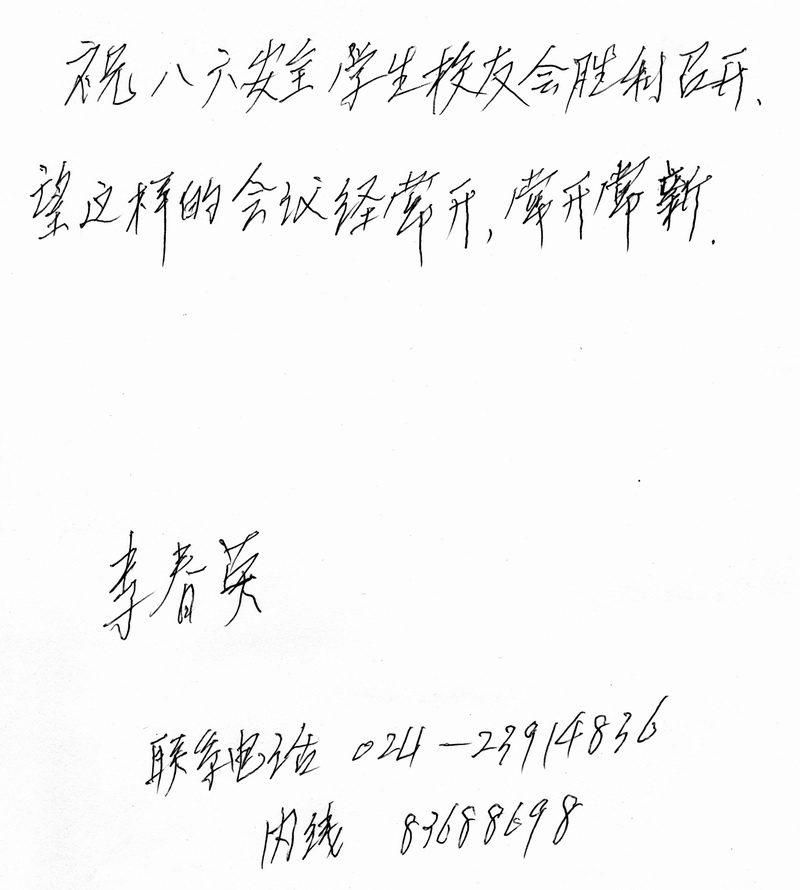 祝八六安全学生校友会胜利召开、
望这样的会议经常开,常开常新.
李春英
联系电话 024-23914836
内线 83688698